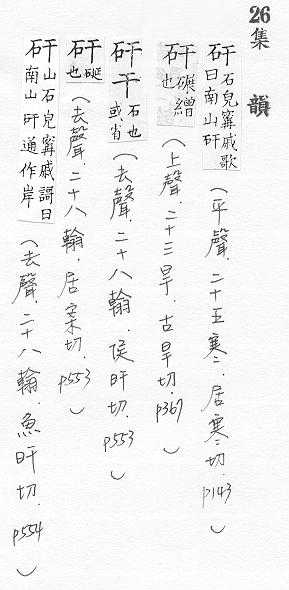 26集 韻
矸 石皃甯戚歌曰南山矸（平聲．二十五寒．居寒切．p143）
矸 碾繒也（上聲．二十三旱．古旱切．p367）
矸 干 石也或省（去聲．二十八翰．侯旰切．p553）
矸 硟也（去聲．二十八翰．居案切．p553）
矸 山石皃甯戚謌曰南山矸通作岸（去聲．二十八翰．魚旰切．p554）